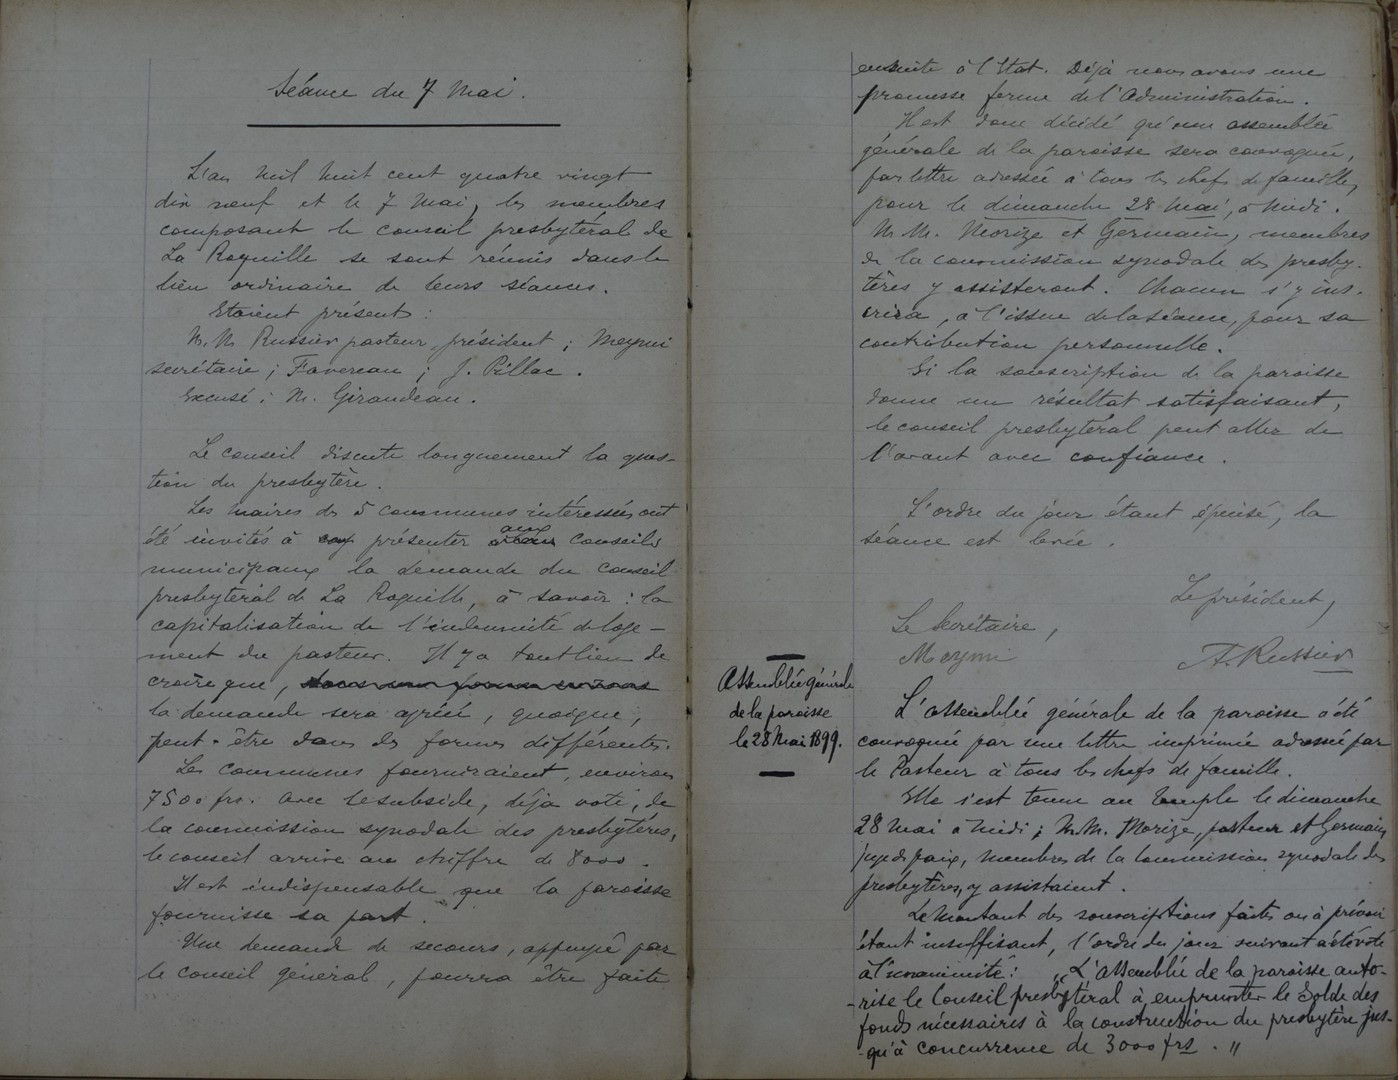 Séance du 7 Mai.
L'an mil huit cent quatre vingt
dix neuf et le 7 Mai, les membres
composant le conseil presbytéral de
La Roquille se sont réunis dans le
lieu ordinaire de leurs séances.
Etaient présents :
M. M. Russier pasteur, président ; Meymi
secrétaire ; Favereau ; J. Pillac.
Excusé : M. Girandeau.
Le conseil discute longuement la ques-
tion du presbytère.
Les maires des 5 communes intéressées ont
été invités à présenter aux conseils
municipaux la demande du Conseil
presbytéral de La Roquille, à savoir : la
capitalisation de l'indemnité de loge-
ment du pasteur. Il y a tout lieu de
croire que,
la demande sera agréée, quoique,
peut-être dans des formes différentes.
Les communes fourniraient, environ
7500 frs. Avec le subside, déja voté, de
la commission synodale des presbytères,
le conseil arrive au chiffre de 8000.
Il est indispensable que la paroisse
fournisse sa part.
Une demande de secours, appuyée par
le conseil général, pourra être faite
ensuite à l'Etat. Déjà nous avons une
promesse ferme de l'Administration.
Il est donc décidé qu'une assemblée
générale de la paroisse sera convoquée,
par lettre adressée à tous les chefs de famille,
pour le dimanche 28 mai, à midi.
M. M. Morize et Germain, membres
de la commission synodale des presby-
tères y assisteront. Chacun s'y ins-
crira, à l'issue de la séance, pour sa
contribution personnelle.
Si la souscription de la paroisse
donne un résultat satisfaisant,
le conseil presbytéral peut aller de
l'avant avec confiance.
L'ordre du jour étant épuisé, la
séance est levée.
Le président,
Le Secrétaire,
Meymi
A. Russier
Assemblée générale
de la paroisse
le 28 Mai 1899.
L'assemblée générale de la paroisse a été
convoquée par une lettre imprimée adressée par
le Pasteur à tous les chefs de famille.
Elle s'est tenue au temple le dimanche
28 mai à midi ; M. M. Morize, pasteur et Germain,
juge de paix, membres de la Commission synodale des
presbytères, y assistaient.
Le Montant des souscriptions faites ou à prévoir
étant insuffisant, l'ordre du jour suivant a été voté
à l'unanimité : „ L'Assemblée de la paroisse auto-
-rise le Conseil presbytéral à emprunter le Solde des
fonds nécessaires à la construction du presbytère jus-
-qu'à concurrence de 3000 frs. „